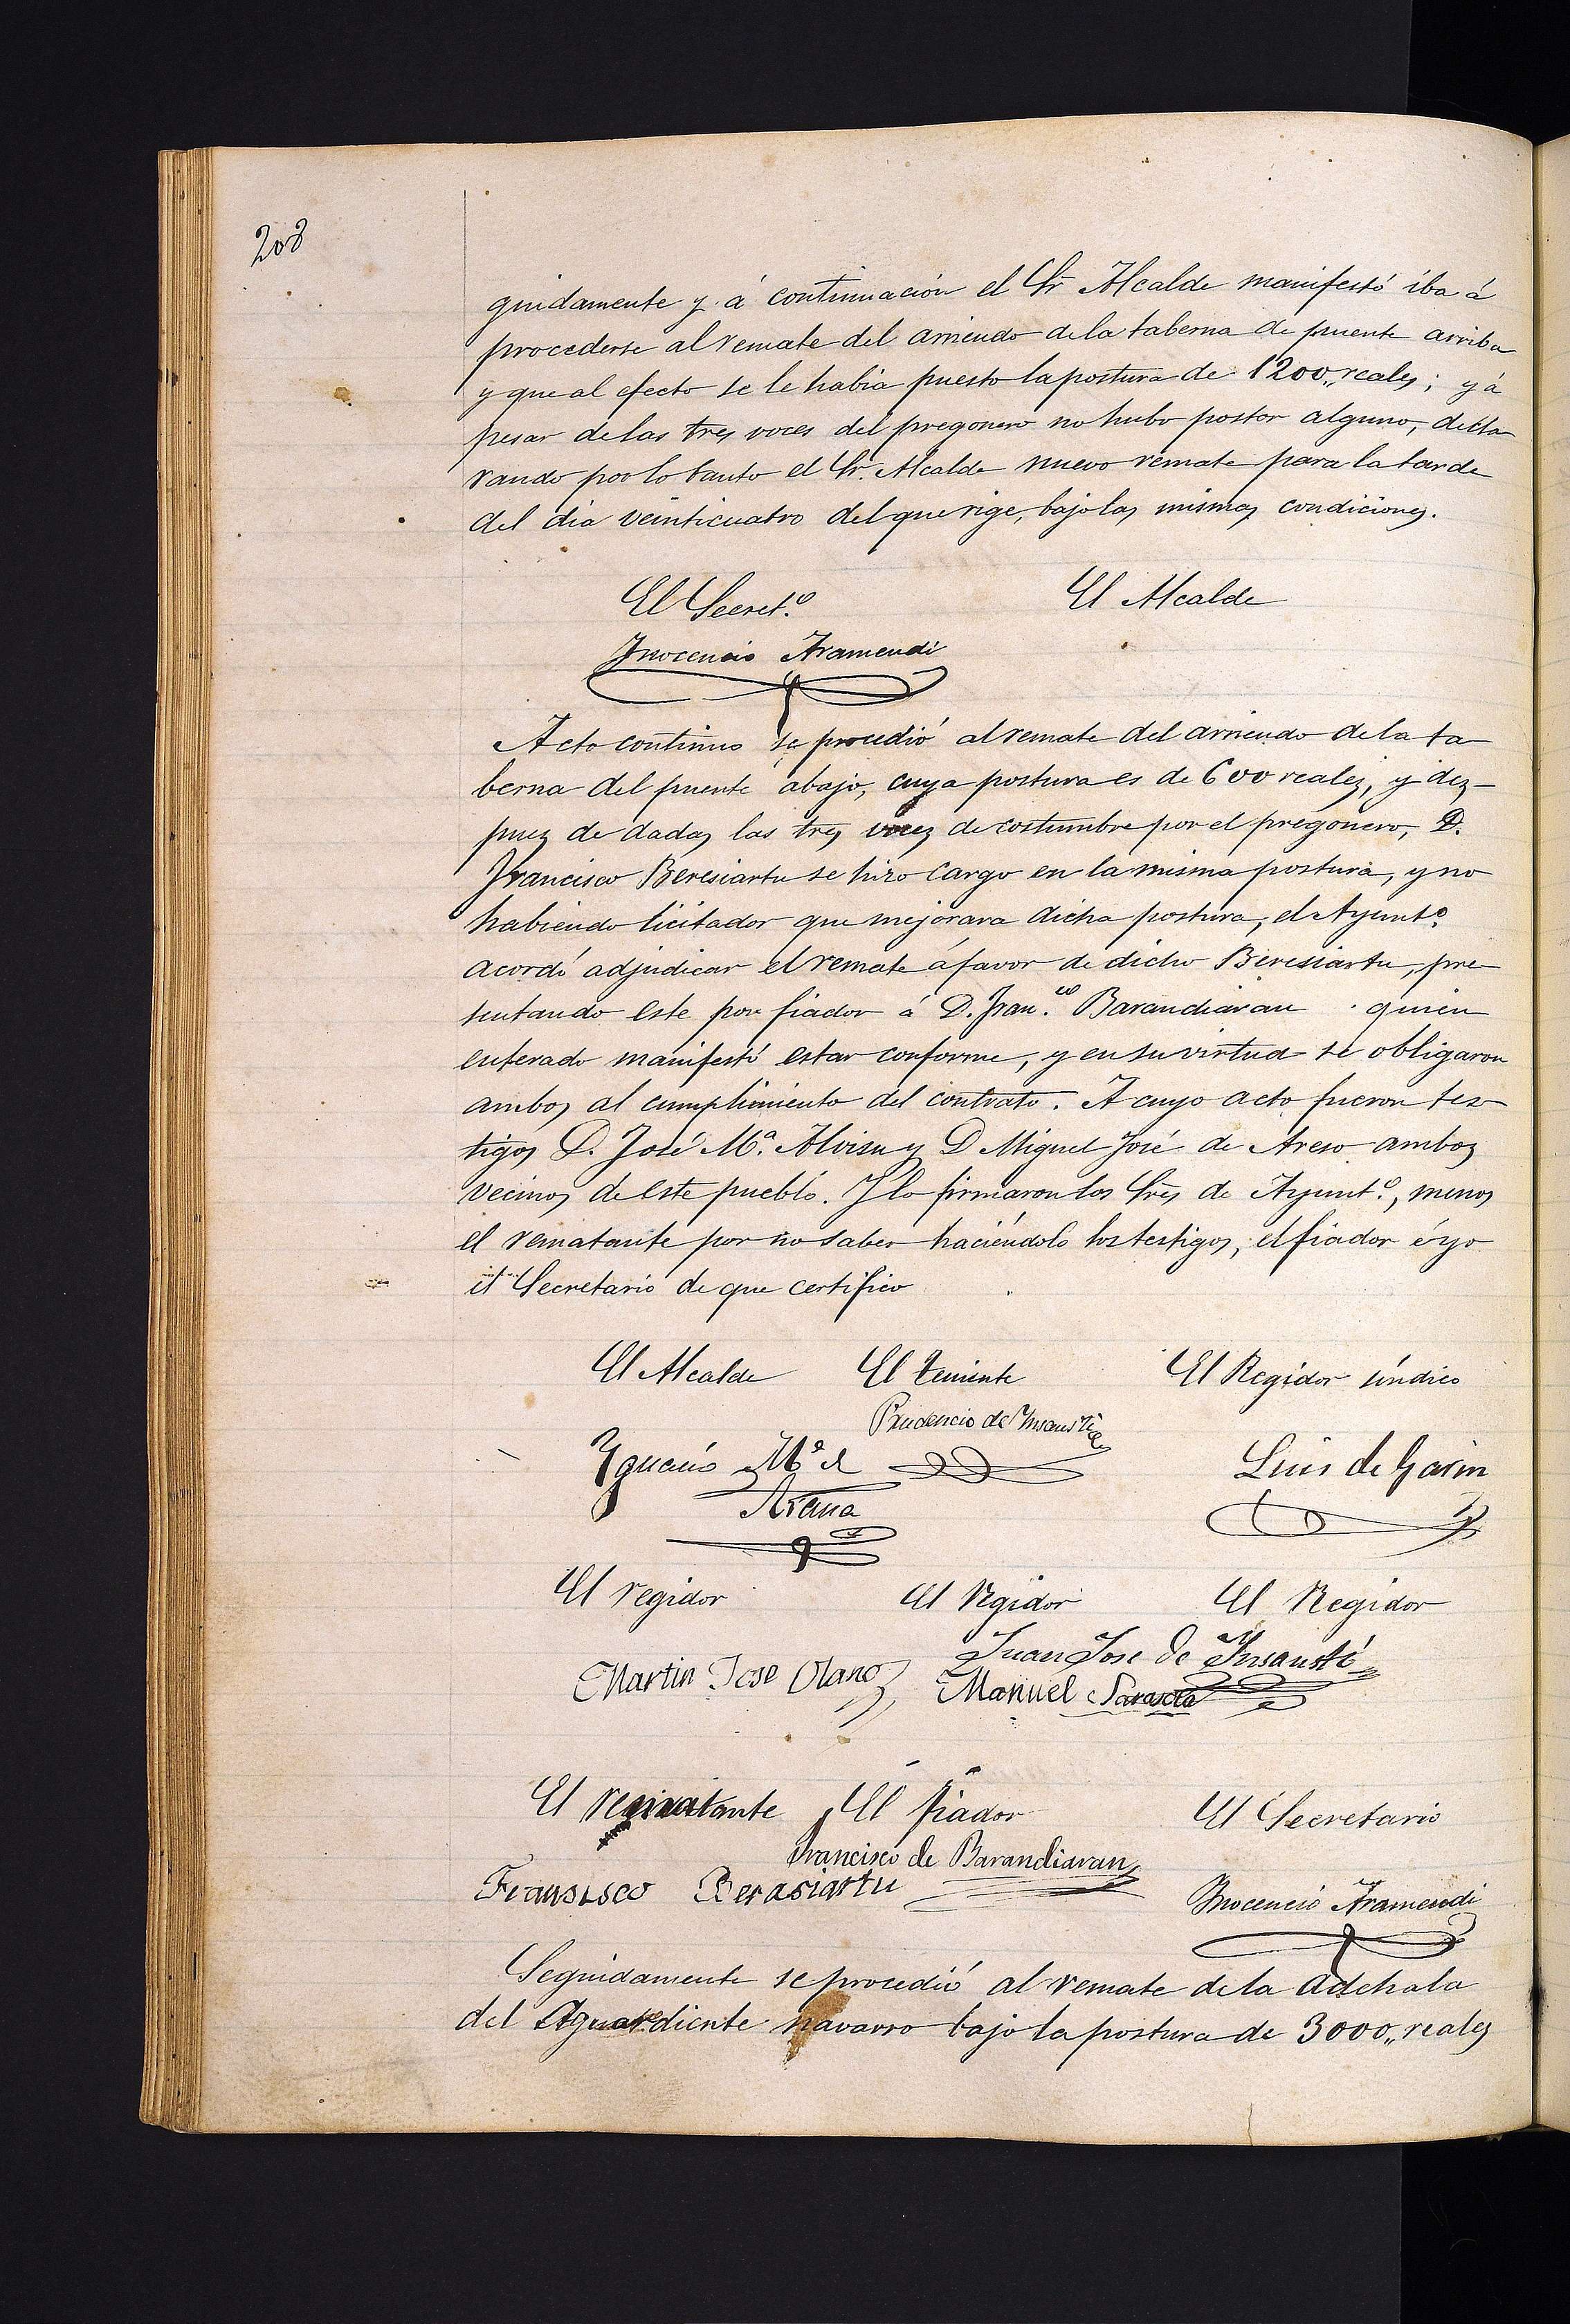 208
guidamente y á continuación el Sr Alcalde manifestó iba á
procederse al remate del arriendo de la taberna de puente arriba
y que al efecto se le habia puesto la postura de 1200,, reales; y á
pesar de las tres voces del pregonero no hubo postor alguno, decla
rando por lo tanto el Sr. Alcalde nuevo remate para la tarde
del dia veinticuatro del que rige, bajo las mismas condiciones.
El Secret.º El Alcalde
Inocencio Aramendi
Acto continuo se procedió al remate del arriendo de la ta
berna del puente abajo, cuya postura es de 600 reales, y des-
pues de dadas las tres voces de costumbre por el pregonero, D.
Francisco Beresiartu se hizo cargo en la misma postura, y no
habiendo licitador que mejorara dicha postura, el Ayunt.º
acordó adjudicar el remate á favor de dicho Beresiartu, pre-
sentando este por fiador á D. Fran.co Barandiaran quien
enterado manifestó estar conforme, y en su virtud se obligaron
ambos al cumplimiento del contrato. A cuyo acto fueron tes-
tigos D. José M.ª Aloisu y D Miguel José de Areso ambos
vecinos de este pueblo. Y lo firmaron los Sres de Ayunt.º, menos
el rematante por no saber haciéndolo los testigos, el fiador é yo
el Secretario de que certifico
El Alcalde El Teniente El Regidor síndico
Prudencio de Insausti
Ygnacio M.ª d Luis de Garin
Arana
El regidor El Regidor El Regidor
Juan Jose de Insausti
Martin Jose Olano Manuel Sarasola
El rematante El fiador El Secretario
Francisco de Barandiaran
Fransisco Berasiartu Inocencio Aramendi
Seguidamente se procedió al remate de la adehala
del Aguardiente navarro bajo la postura de 3000,, reales